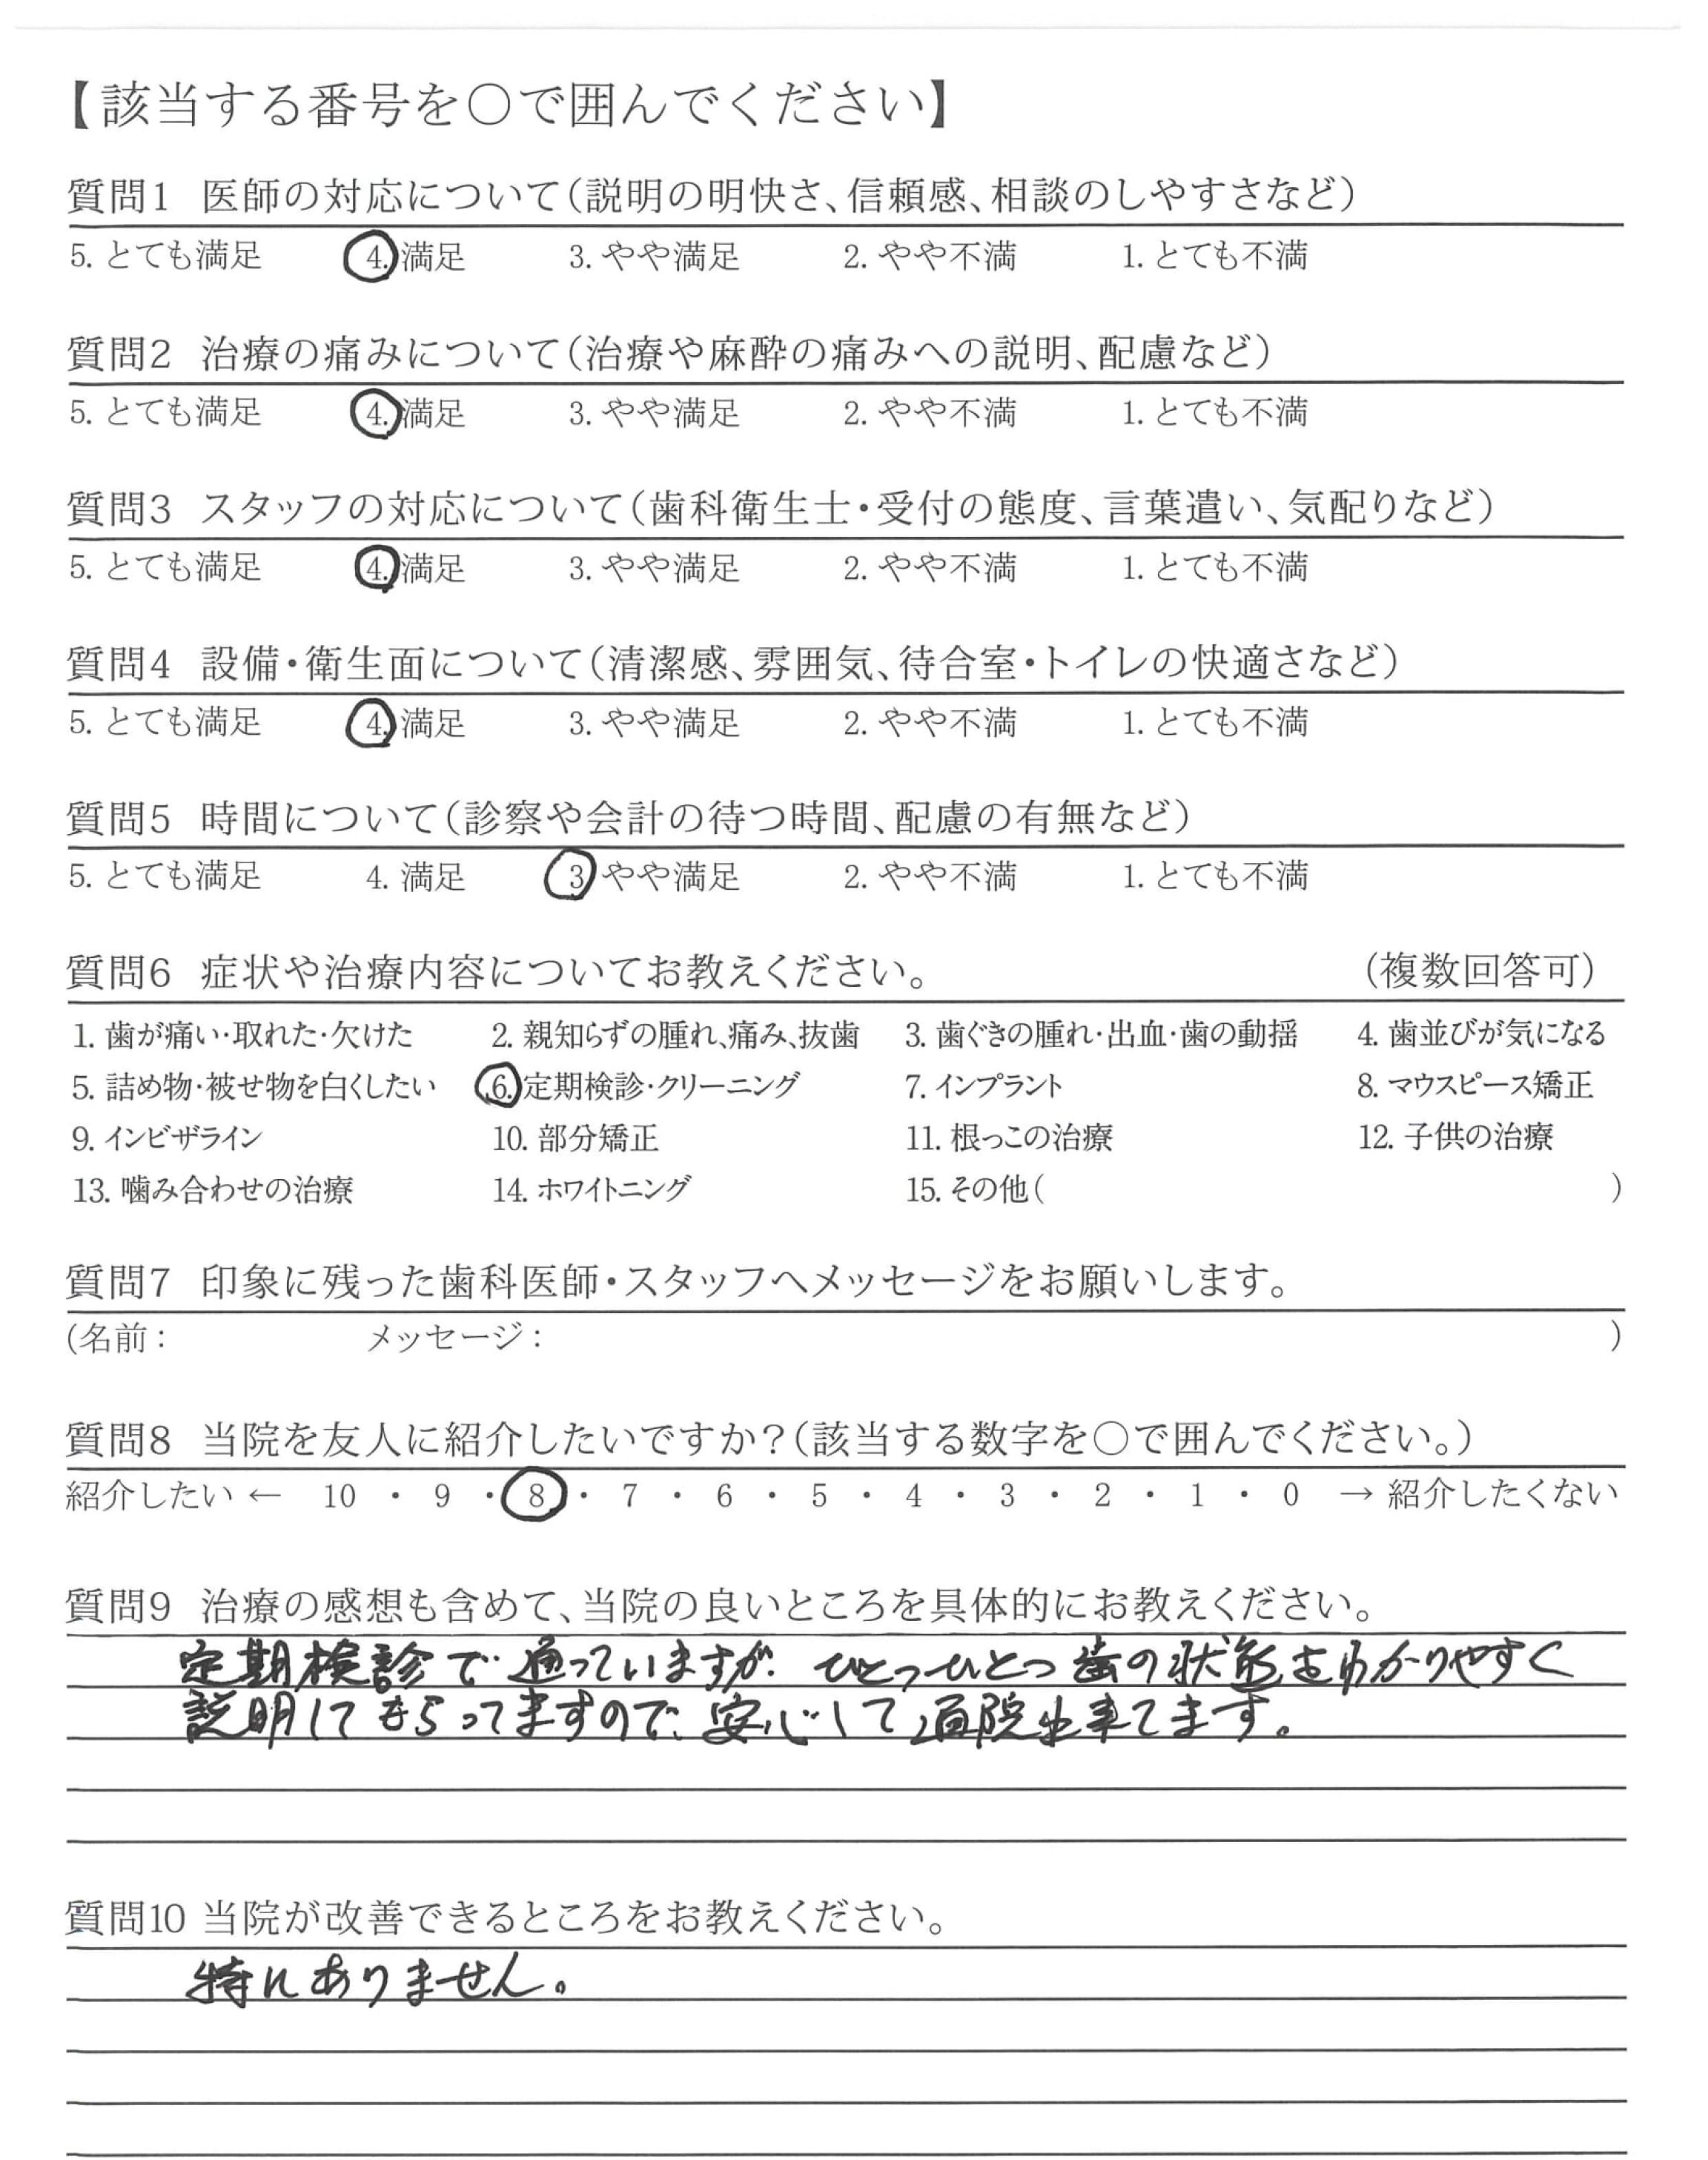 【該当する番号を○で囲んでください】
質問1 医師の対応について(説明の明快さ、信頼感、相談のしやすさなど)
5. とても満足 4. 満足 3. やや満足 2. やや不満 1. とても不満
質問2 治療の痛みについて(治療や麻酔の痛みへの説明、配慮など)
5. とても満足 4. 満足 3. やや満足 2. やや不満 1. とても不満
質問3 スタッフの対応について(歯科衛生士・受付の態度、言葉遣い、気配りなど)
5. とても満足 4. 満足 3. やや満足 2. やや不満 1. とても不満
質問4 設備・衛生面について(清潔感、雰囲気、待合室・トイレの快適さなど)
5. とても満足 4. 満足 3. やや満足 2. やや不満 1. とても不満
質問5 時間について(診察や会計の待つ時間、配慮の有無など)
5. とても満足 4. 満足 3 やや満足 2. やや不満 1. とても不満
質問6 症状や治療内容についてお教えください。 (複数回答可)
1. 歯が痛い・取れた・欠けた 2. 親知らずの腫れ、痛み、抜歯 3. 歯ぐきの腫れ・出血・歯の動揺 4. 歯並びが気になる
5. 詰め物・被せ物を白くしたい 6. 定期検診・クリーニング 7. インプラント 8. マウスピース矯正
9. インビザライン 10. 部分矯正 11. 根っこの治療 12. 子供の治療
13. 噛み合わせの治療 14. ホワイトニング 15. その他( )
質問7 印象に残った歯科医師・スタッフへメッセージをお願いします。
(名前: メッセージ: )
質問8 当院を友人に紹介したいですか?(該当する数字を○で囲んでください。)
紹介したい ← 10 ・ 9 ・ 8 ・ 7 ・ 6 ・ 5 ・ 4 ・ 3 ・ 2 ・ 1 ・ 0 → 紹介したくない
質問9 治療の感想も含めて、当院の良いところを具体的にお教えください。
定期検診で通っていますが、ひとつひとつ歯の状態をわかりやすく
説明してもらってますので、安心して通院出来てます。
質問10 当院が改善できるところをお教えください。
特にありません。